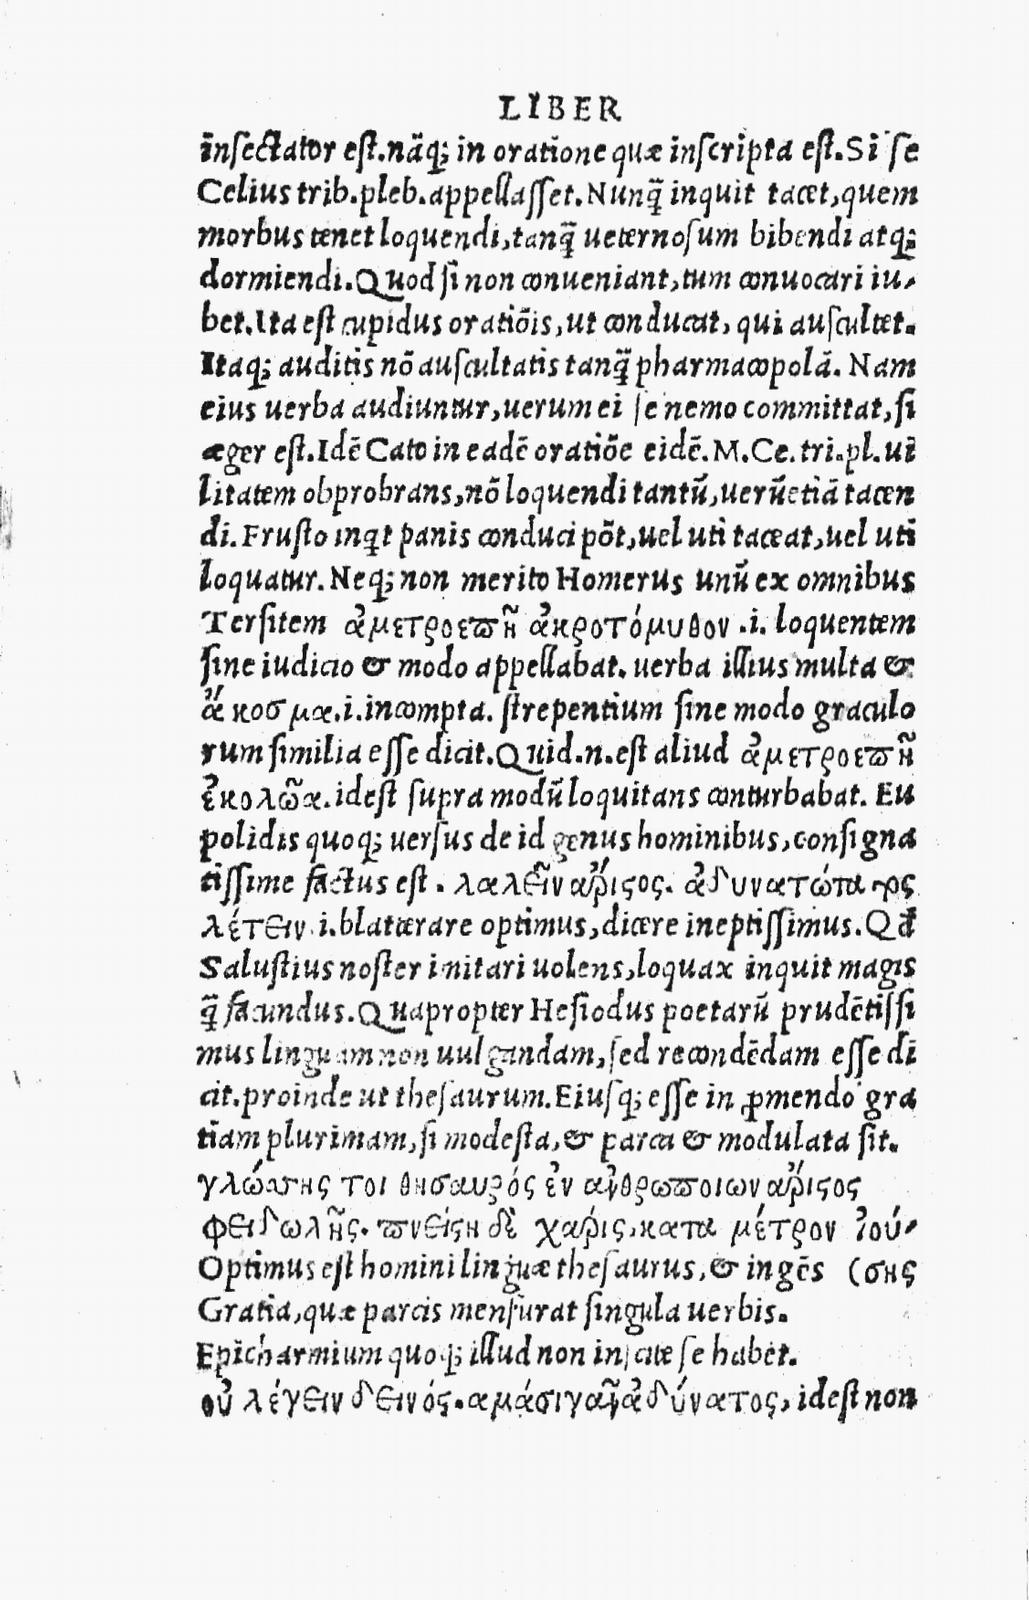 LIBER
insectator est.nāq; in oratione quæ inscripta est.Si se
Celius trib.pleb.appellasset.Nunq̃ inquit tacet,quem
morbus tenet loquendi,tanq̃ ueternosum bibendi atq;
dormiendi.Quod si non conueniant,tum conuocari iu-
bet.Ita est cupidus oratiōis,ut conducat, qui auscultet.
Itaq; auditis nō auscultatis tanq̃ pharmacopolā. Nam
eius uerba audiuntur,uerum ei se nemo committat,si
æger est.Idē Cato in eadē oratiōe eidē.M.Ce.tri.pl.ui
litatem obprobrans,nō loquendi tantū,uerūetiā tacen
di.Frusto inqt panis conduci pōt,uel uti taceat,uel uti
loquatur.Neq; non merito Homerus unū ex omnibus
Tersitem ἀμετροεπῆ ἀκροτόμυθον .i. loquentem
sine iudicio & modo appellabat. uerba illius multa &
ἄκοσμα.i.incompta. strepentium sine modo graculo
rum similia esse dicit.Quid.n.est aliud ἀμετροεπῆ
ἐκολῶα.idest supra modū loquitans conturbabat. Eu
polidis quoq; uersus de id genus hominibus,consigna
tissime factus est. λαλεῖν ἄριςος. ἀδυνατώτα ρς
λέτειν.i.blaterare optimus,dicere ineptissimus.Qd
Salustius noster imitari uolens,loquax inquit magis
q̃ facundus.Quapropter Hesiodus poetarū prudētissi
mus linguam non uulgandam,sed recondēdam esse di
cit.proinde ut thesaurum.Eiusq; esse in ꝓmendo gra
tiam plurimam,si modesta,& parca & modulata sit.
γλώσσης τοι θησαυρός ἐν ἀνθρωποιων ἄριςος
φειδωλῆς. πνείςη δὲ χαρίς,κατα μέτρον ἰού-
Optimus est homini linguæ thesaurus,& ingēs (σης
Gratia,quæ parcis mensurat singula uerbis.
Epicharmium quoq; illud non inscite se habet.
οὐ λέγειν δεινός.αμάσιγᾶν ἀδύνατος, idest non